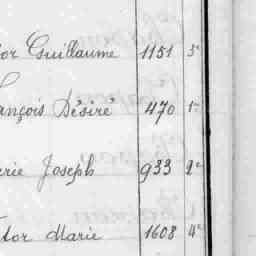 or Guillaume 1151 5e
ançois Désiré 470 1re
rie Joseph 933 2e
tor Marie 1608 4e